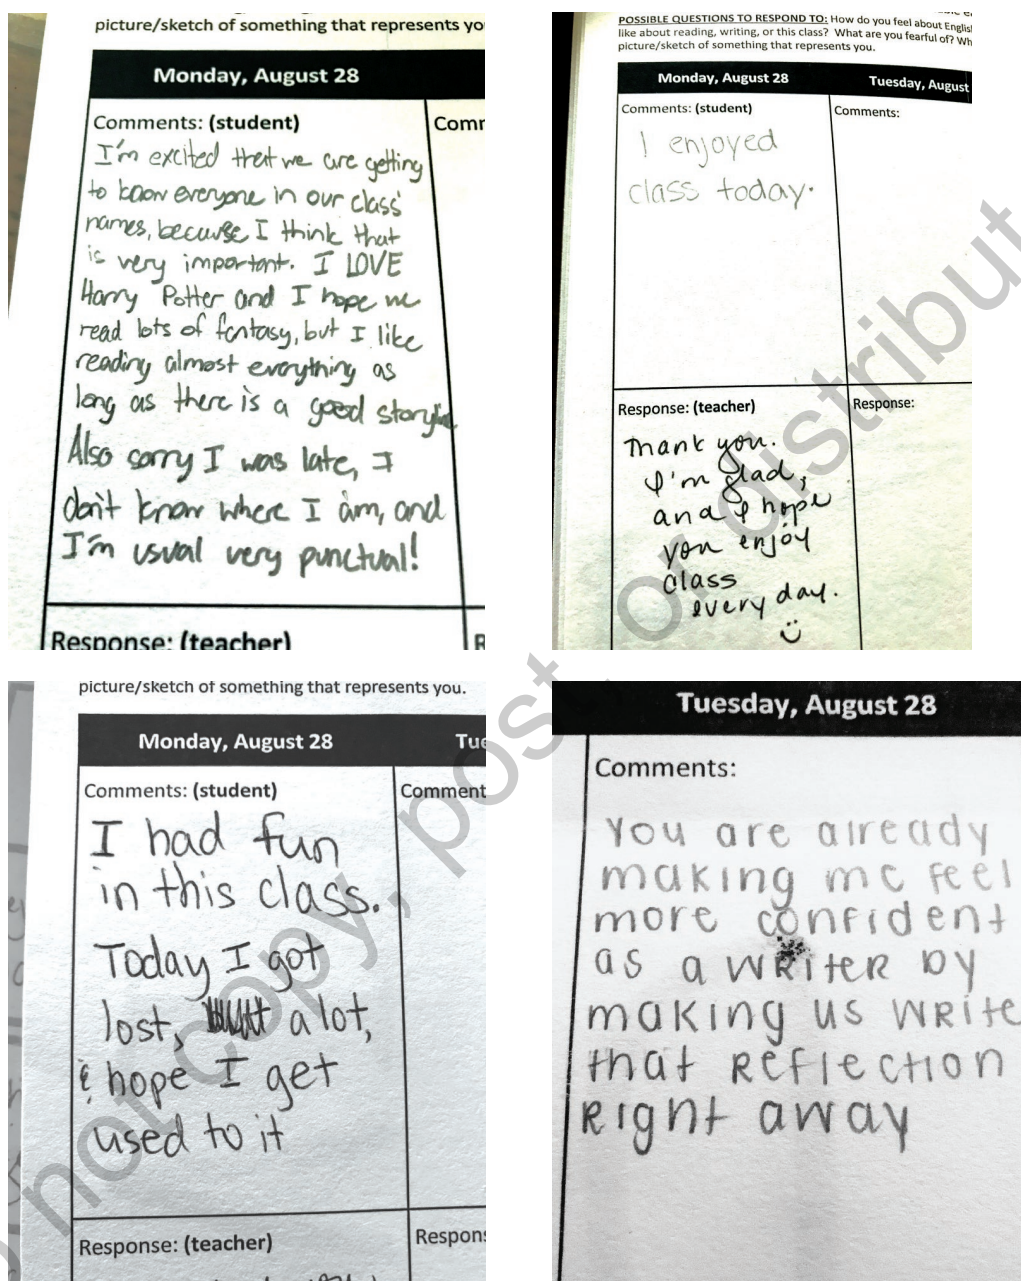 picture/sketch of something that represents yo
Monday, August 28
Comments: (student)
Comm
I'm excited that we are getting
to know everyone in our class'
names, because I think that
is very important. I LOVE
Harry Potter and I hope we
read lots of fantasy, but I like
reading almost everything as
long as there is a good storyline
Also sorry I was late, I
don't know where I am, and
I'm usual very punctual!
Response: (teacher)
R
POSSIBLE QUESTIONS TO RESPOND TO: How do you feel about Englis
like about reading, writing, or this class? What are you fearful of? Wh
picture/sketch of something that represents you.
Monday, August 28
Tuesday, August
Comments: (student)
Comments:
I enjoyed
class today.
Response: (teacher)
Response:
Thank you.
I'm glad,
and I hope
you enjoy
class
every day.
picture/sketch of something that represents you.
Monday, August 28
Tue
Comments: (student)
Comment
I had fun
in this class.
Today I got
lost, a lot,
& hope I get
used to it
Response: (teacher)
Respons
Tuesday, August 28
Comments:
You are already
making me feel
more confident
as a writer by
making us write
that reflection
right away
not copy, post, or distribut